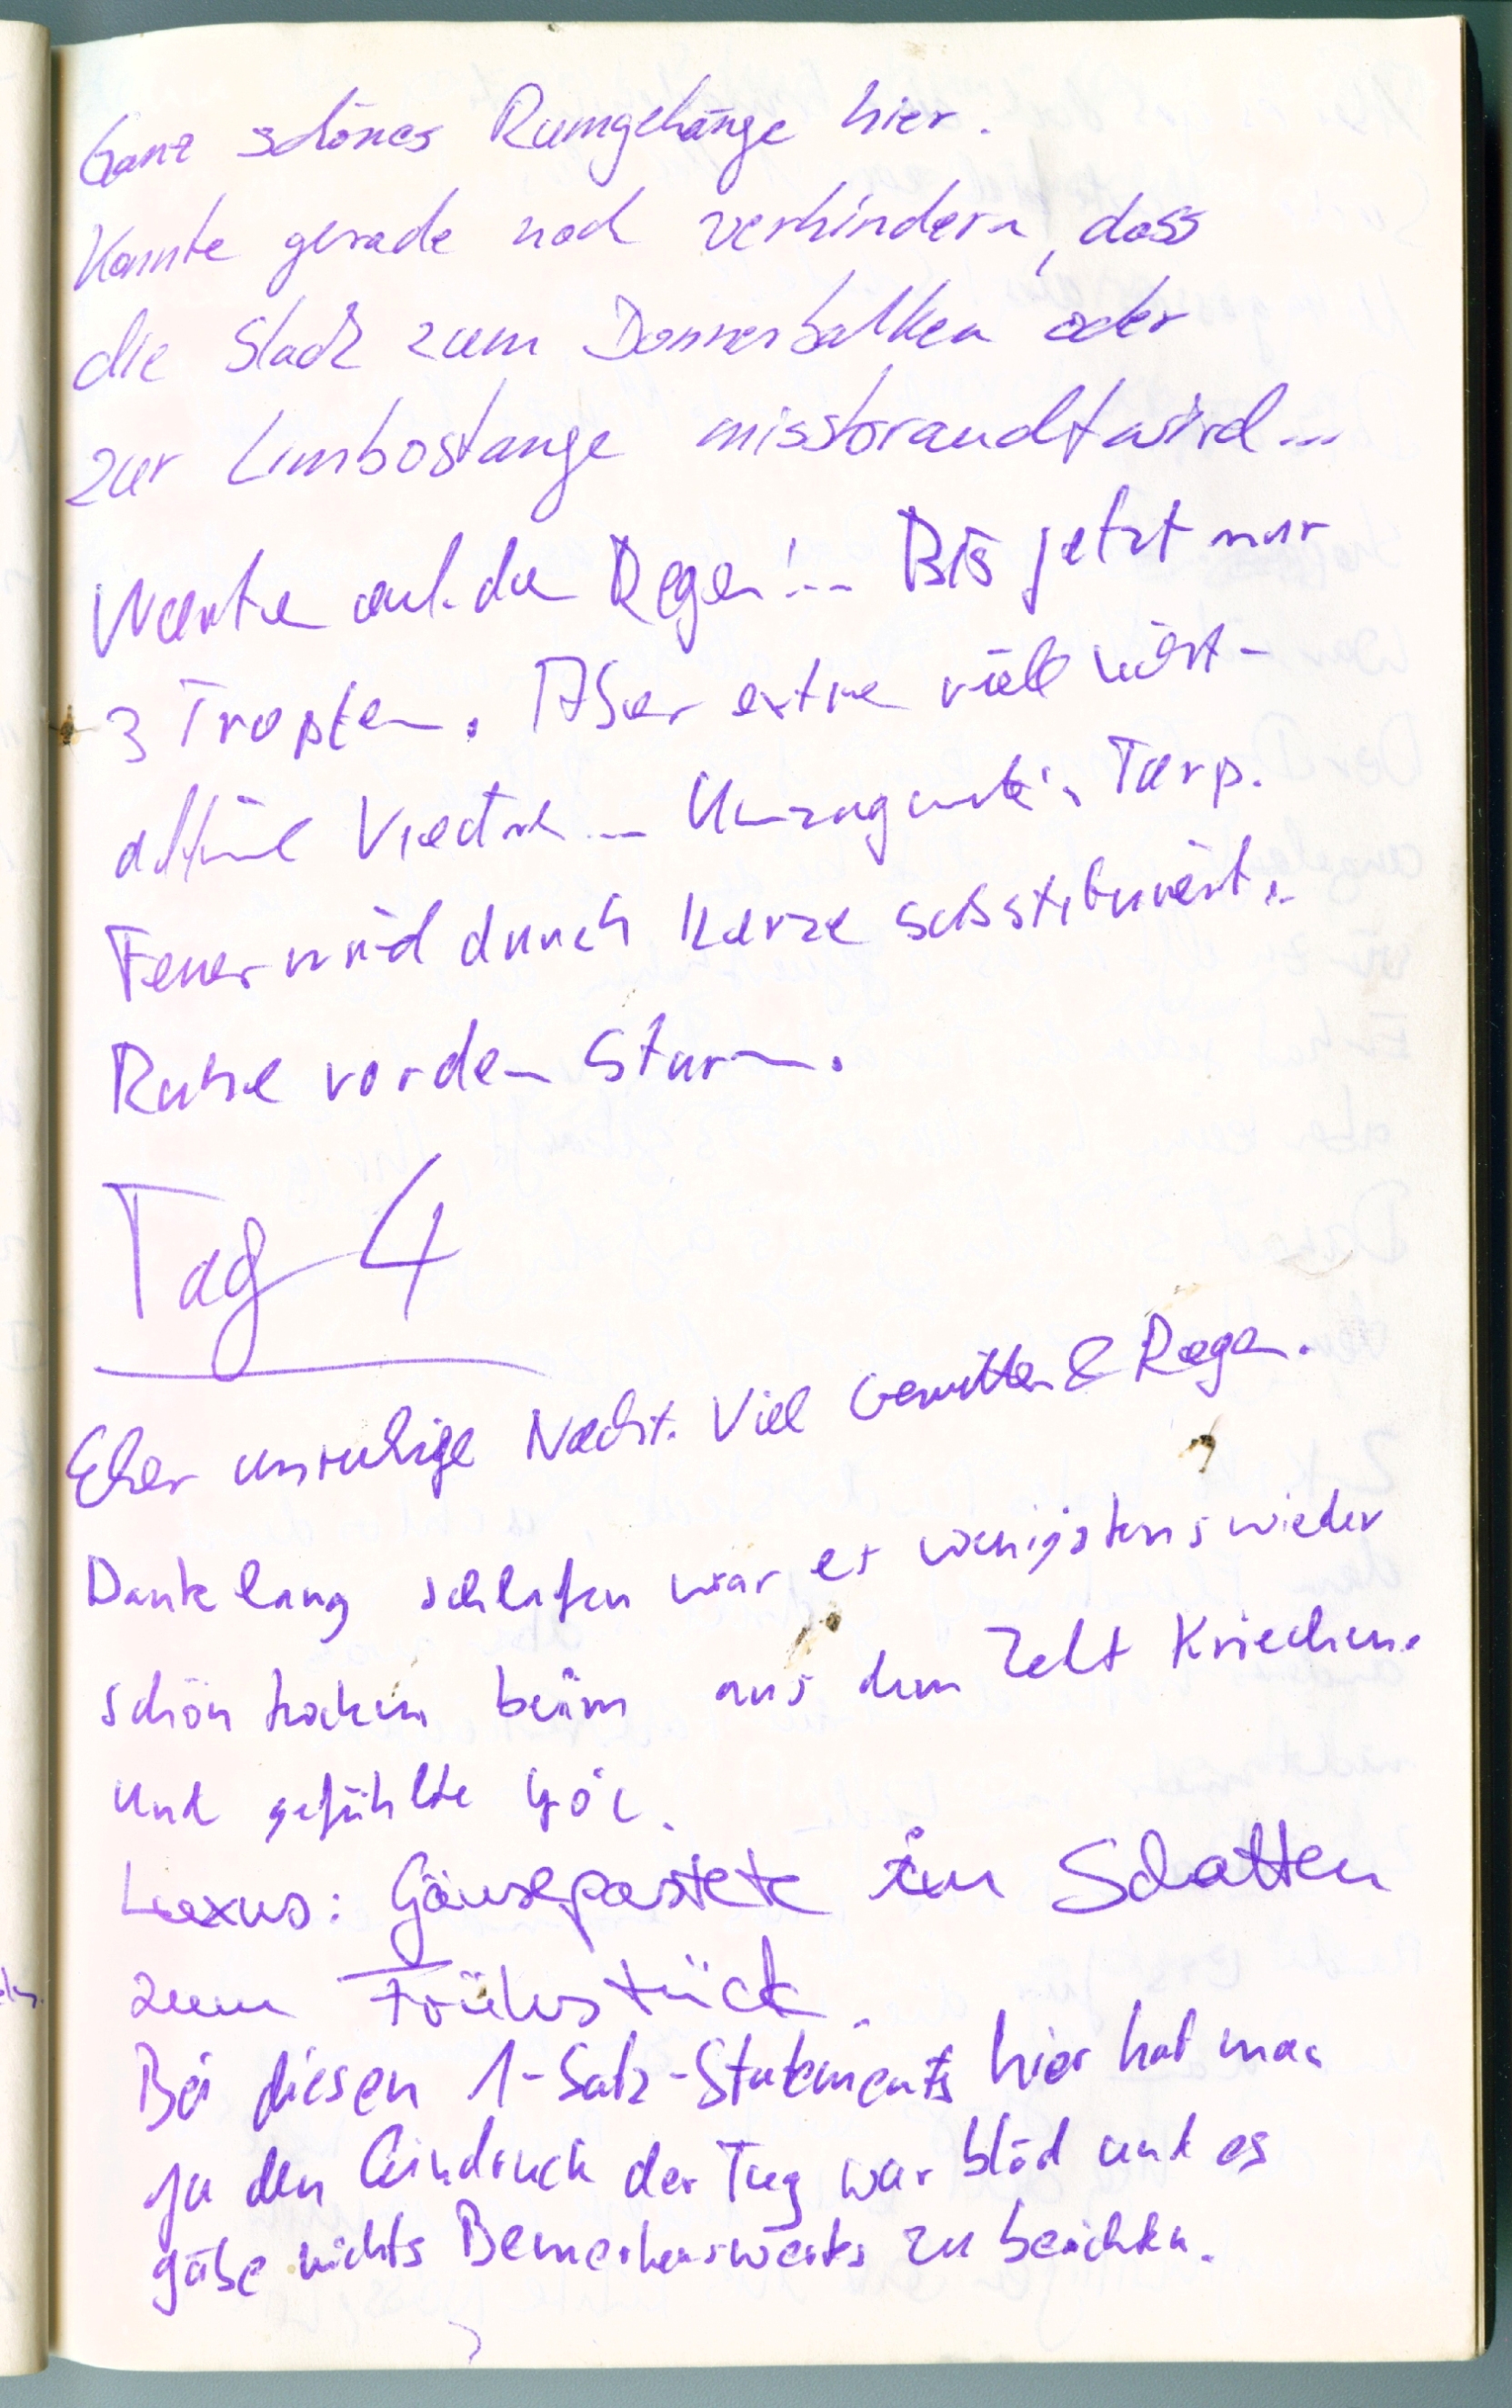 Ganz schönes Rumgehänge hier.
Konnte gerade noch verhindern, dass
die Slack zum Donnerbalken oder
zur Limbostange missbraucht wird...
Warten auf den Regen!... Bis jetzt nur
3 Tropfen. Aber extra viel
Tarp.
Feuer wird durch Kerze substituiert..
Ruhe vor dem Sturm.
Tag 4
Eher unruhige Nacht. Viel Gewitter & Regen.
Dank lang schlafen war es wenigstens wieder
schön trocken beim aus dem Zelt Kriechen.
Und gefühlte 40°C.
Luxus: Gänsepastete im Schatten
zum Frühstück.
Bei diesen 1-Satz-Statements hier hat man
ja den Eindruck der Tag war blöd und es
gäbe nichts Bemerkenswertes zu berichten.